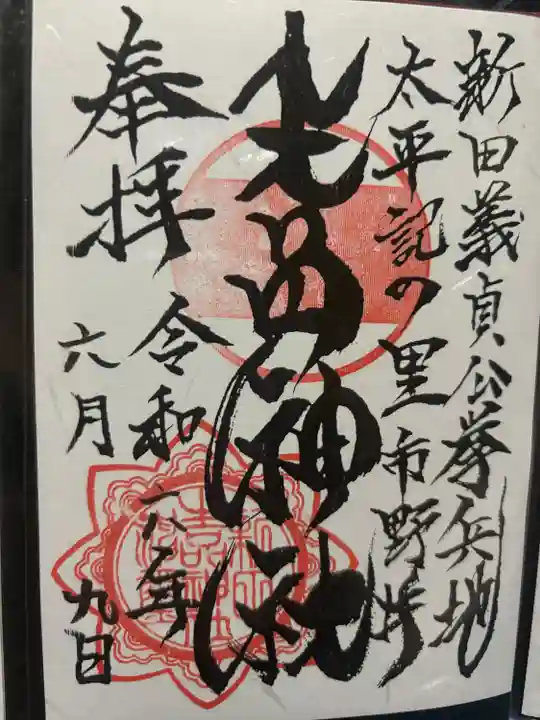 新田義貞公挙兵地
太平記の里市野井
生品神社
奉拝
令和六年
六月九日